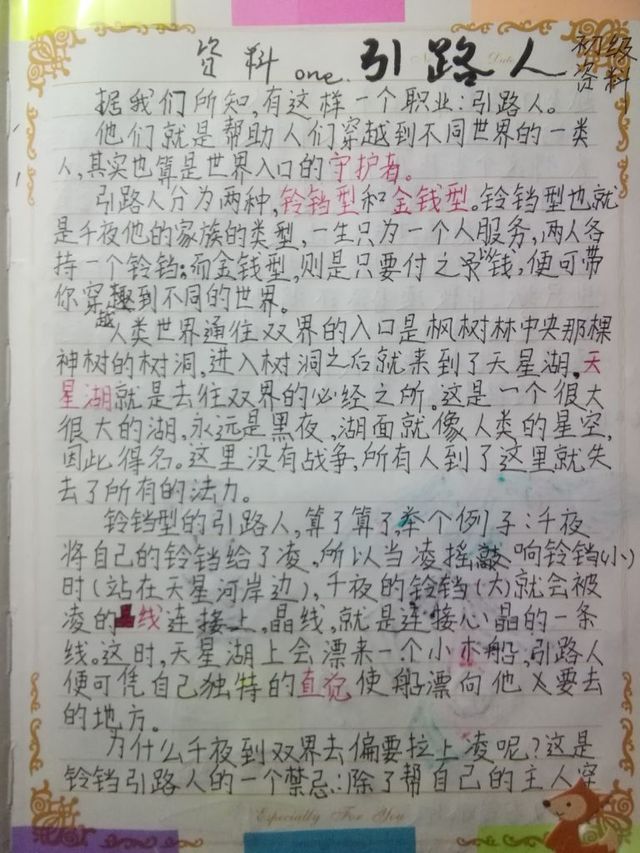 资料one.引路人 初级资料
据我们所知,有这样一个职业:引路人。
他们就是帮助人们穿越到不同世界的一类
人,其实也算是世界入口的守护者。
引路人分为两种,铃铛型和金钱型。铃铛型也就
是千夜他的家族的类型,一生只为一个人服务,两人各
持一个铃铛;而金钱型,则是只要付之以钱,便可带
你穿越到不同的世界。
人类世界通往双界的入口是枫树林中央那棵
神树的树洞,进入树洞之后就来到了天星湖。天
星湖就是去往双界的必经之所。这是一个很大
很大的湖,永远是黑夜,湖面就像人类的星空,
因此得名。这里没有战争,所有人到了这里就失
去了所有的法力。
铃铛型的引路人,算了算了,举个例子:千夜
将自己的铃铛给了凌,所以当凌摇响铃铛(小)
时(站在天星河岸边),千夜的铃铛(大)就会被
凌的晶线连接上,晶线,就是连接心晶的一条
线。这时,天星湖上会漂来一个小木船,引路人
便可凭自己独特的直觉使船漂向他要去
的地方。
为什么千夜到双界去偏要拉上凌呢?这是
铃铛引路人的一个禁忌:除了帮自己的主人穿
Especially For You